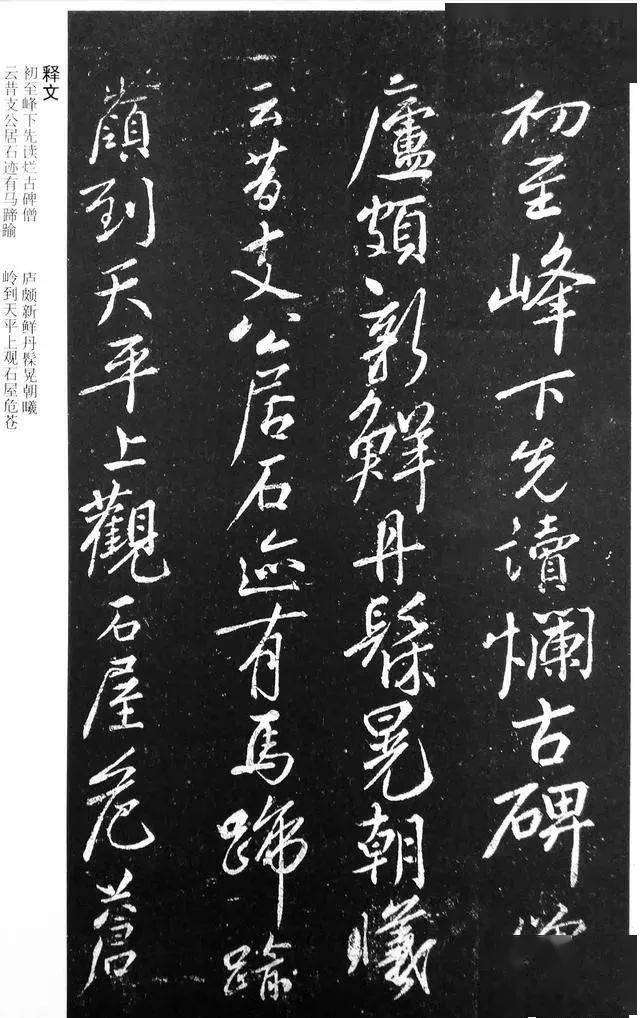 初至峰下先讀爛古碑
廬頗新鮮丹髹晃朝曦
云昔支公居石迹有馬蹄踰
嶺到天平上觀石屋危蒼
释文
初至峰下先读烂古碑僧
庐颇新鲜丹髹晃朝曦
云昔支公居石迹有马蹄踰
岭到天平上观石屋危苍